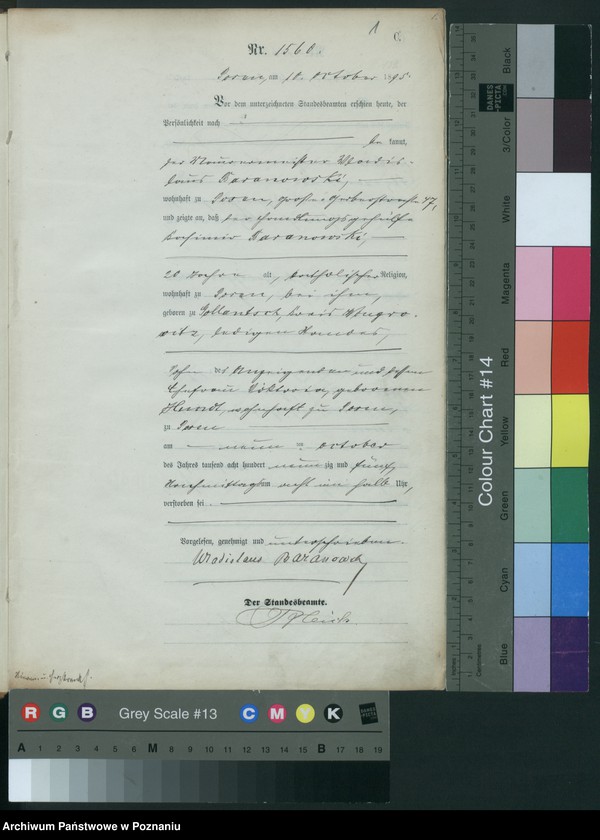 1
C.
Nr. 1560.
Posen, am 10. October 1895.
Vor dem unterzeichneten Standesbeamten erschien heute, der
Persönlichkeit nach
be kannt,
der Maurermeister Wladis-
laus Baranowski,
wohnhaft zu Posen, große Gerberstraße 47,
und zeigte an, daß der Handlungsgehülfe
Baranowski,
20 Jahre alt, katholischer Religion,
wohnhaft zu Posen, bei ihm,
geboren zu Gollantsch, Kreis Wongro-
witz, ledigen Standes,
Sohn des Anzeigenden und dessen
Ehefrau Viktoria, geborenen
wohnhaft zu Posen,
zu Posen
am neun ten October
des Jahres tausend acht hundert neun zig und fünf,
Nachmittags um acht ein halb Uhr,
verstorben sei.
Vorgelesen, genehmigt und unterschrieben.
Wladislaus Baranowski
Der Standesbeamte.
Colour Chart #14
Black
3/Color
White
Magenta
Red
Yellow
Green
Cyan
Blue
Inches
Centimetres
DANES
PICTA
.COM
R G B Grey Scale #13 C M Y K
DANES
PICTA
A 1 2 3 4 5 6 M 8 9 10 11 12 13 14 15 B 17 18 19
Archiwum Państwowe w Poznaniu